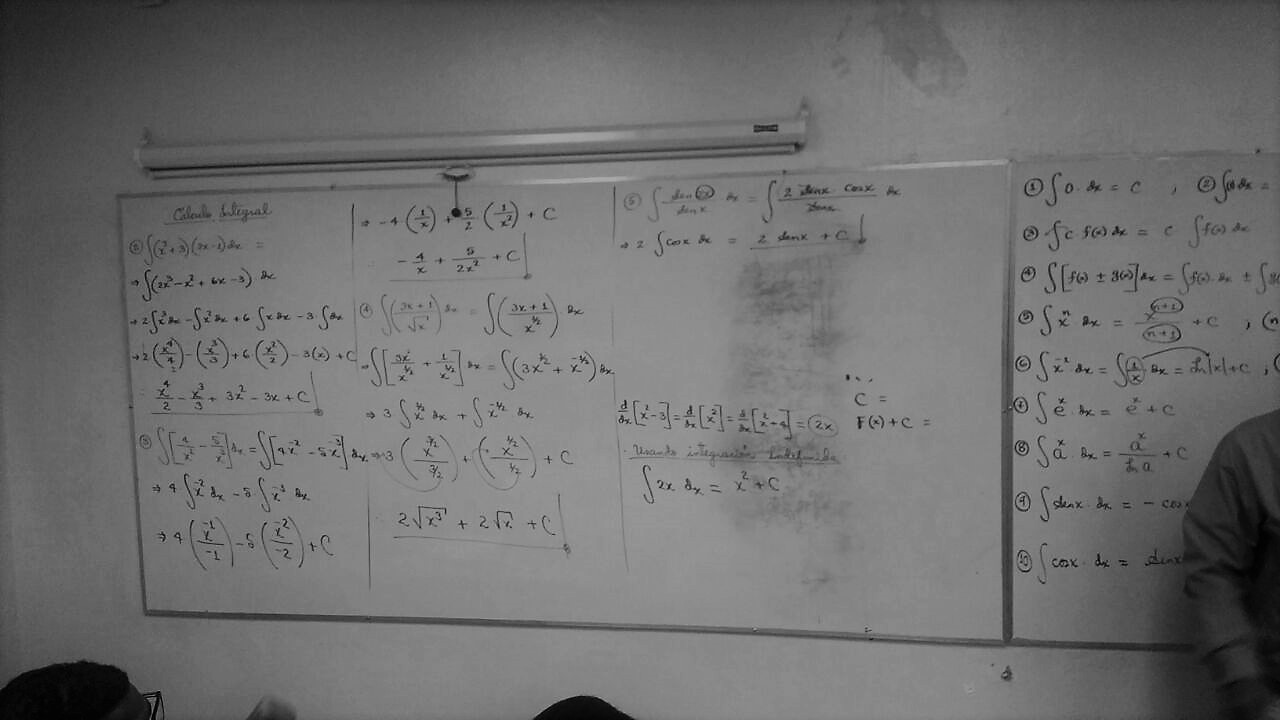 Cálculo Integral
② ∫(x²+3)(2x-1)dx =
⇒ ∫(2x³-x²+6x-3) dx
⇒ 2∫x³dx-∫x²dx+6∫xdx-3∫dx
⇒ 2(x⁴/4)-(x³/3)+6(x²/2)-3(x)+C
x⁴/2 - x³/3 + 3x² - 3x + C
③ ∫[4/x² - 5/x³]dx = ∫[4x⁻² - 5x⁻³]dx
⇒ 4∫x⁻²dx - 5∫x⁻³dx
⇒ 4(x⁻¹/-1) - 5(x⁻²/-2) + C
⇒ -4(1/x) + 5/2(1/x²) + C
-4/x + 5/2x² + C
④ ∫(3x+1/√x)dx = ∫(3x+1/x^½)dx
⇒ ∫[3x/x^½ + 1/x^½]dx = ∫(3x^½ + x^-½)dx
⇒ 3∫x^½dx + ∫x^-½ dx
⇒ 3(x^3/2/3/2) + (x^½/½) + C
2√x³ + 2√x + C
⑤ ∫ sen2x/senx dx = ∫ 2 senx cosx/senx dx
⇒ 2∫cosx dx = 2 senx + C
C =
d/dx[x²-3] = d/dx[x²] = d/dx[x²+4] = 2x
F(x)+C =
Usando integración Indefinida
∫2x dx = x² + C
① ∫0·dx = C , ②
③ ∫C f(x) dx = C ∫f(x) dx
④ ∫[f(x) ± g(x)]dx = ∫f(x)·dx ±
⑤ ∫xⁿ·dx = xⁿ⁺¹/n+1 + C ,
⑥ ∫x⁻¹·dx = ∫1/x dx = Ln|x|+C ,
⑦ ∫eˣ·dx = eˣ + C
⑧ ∫aˣ dx = aˣ/Ln a + C
⑨ ∫senx·dx = - cos
⑩ ∫cosx·dx = senx